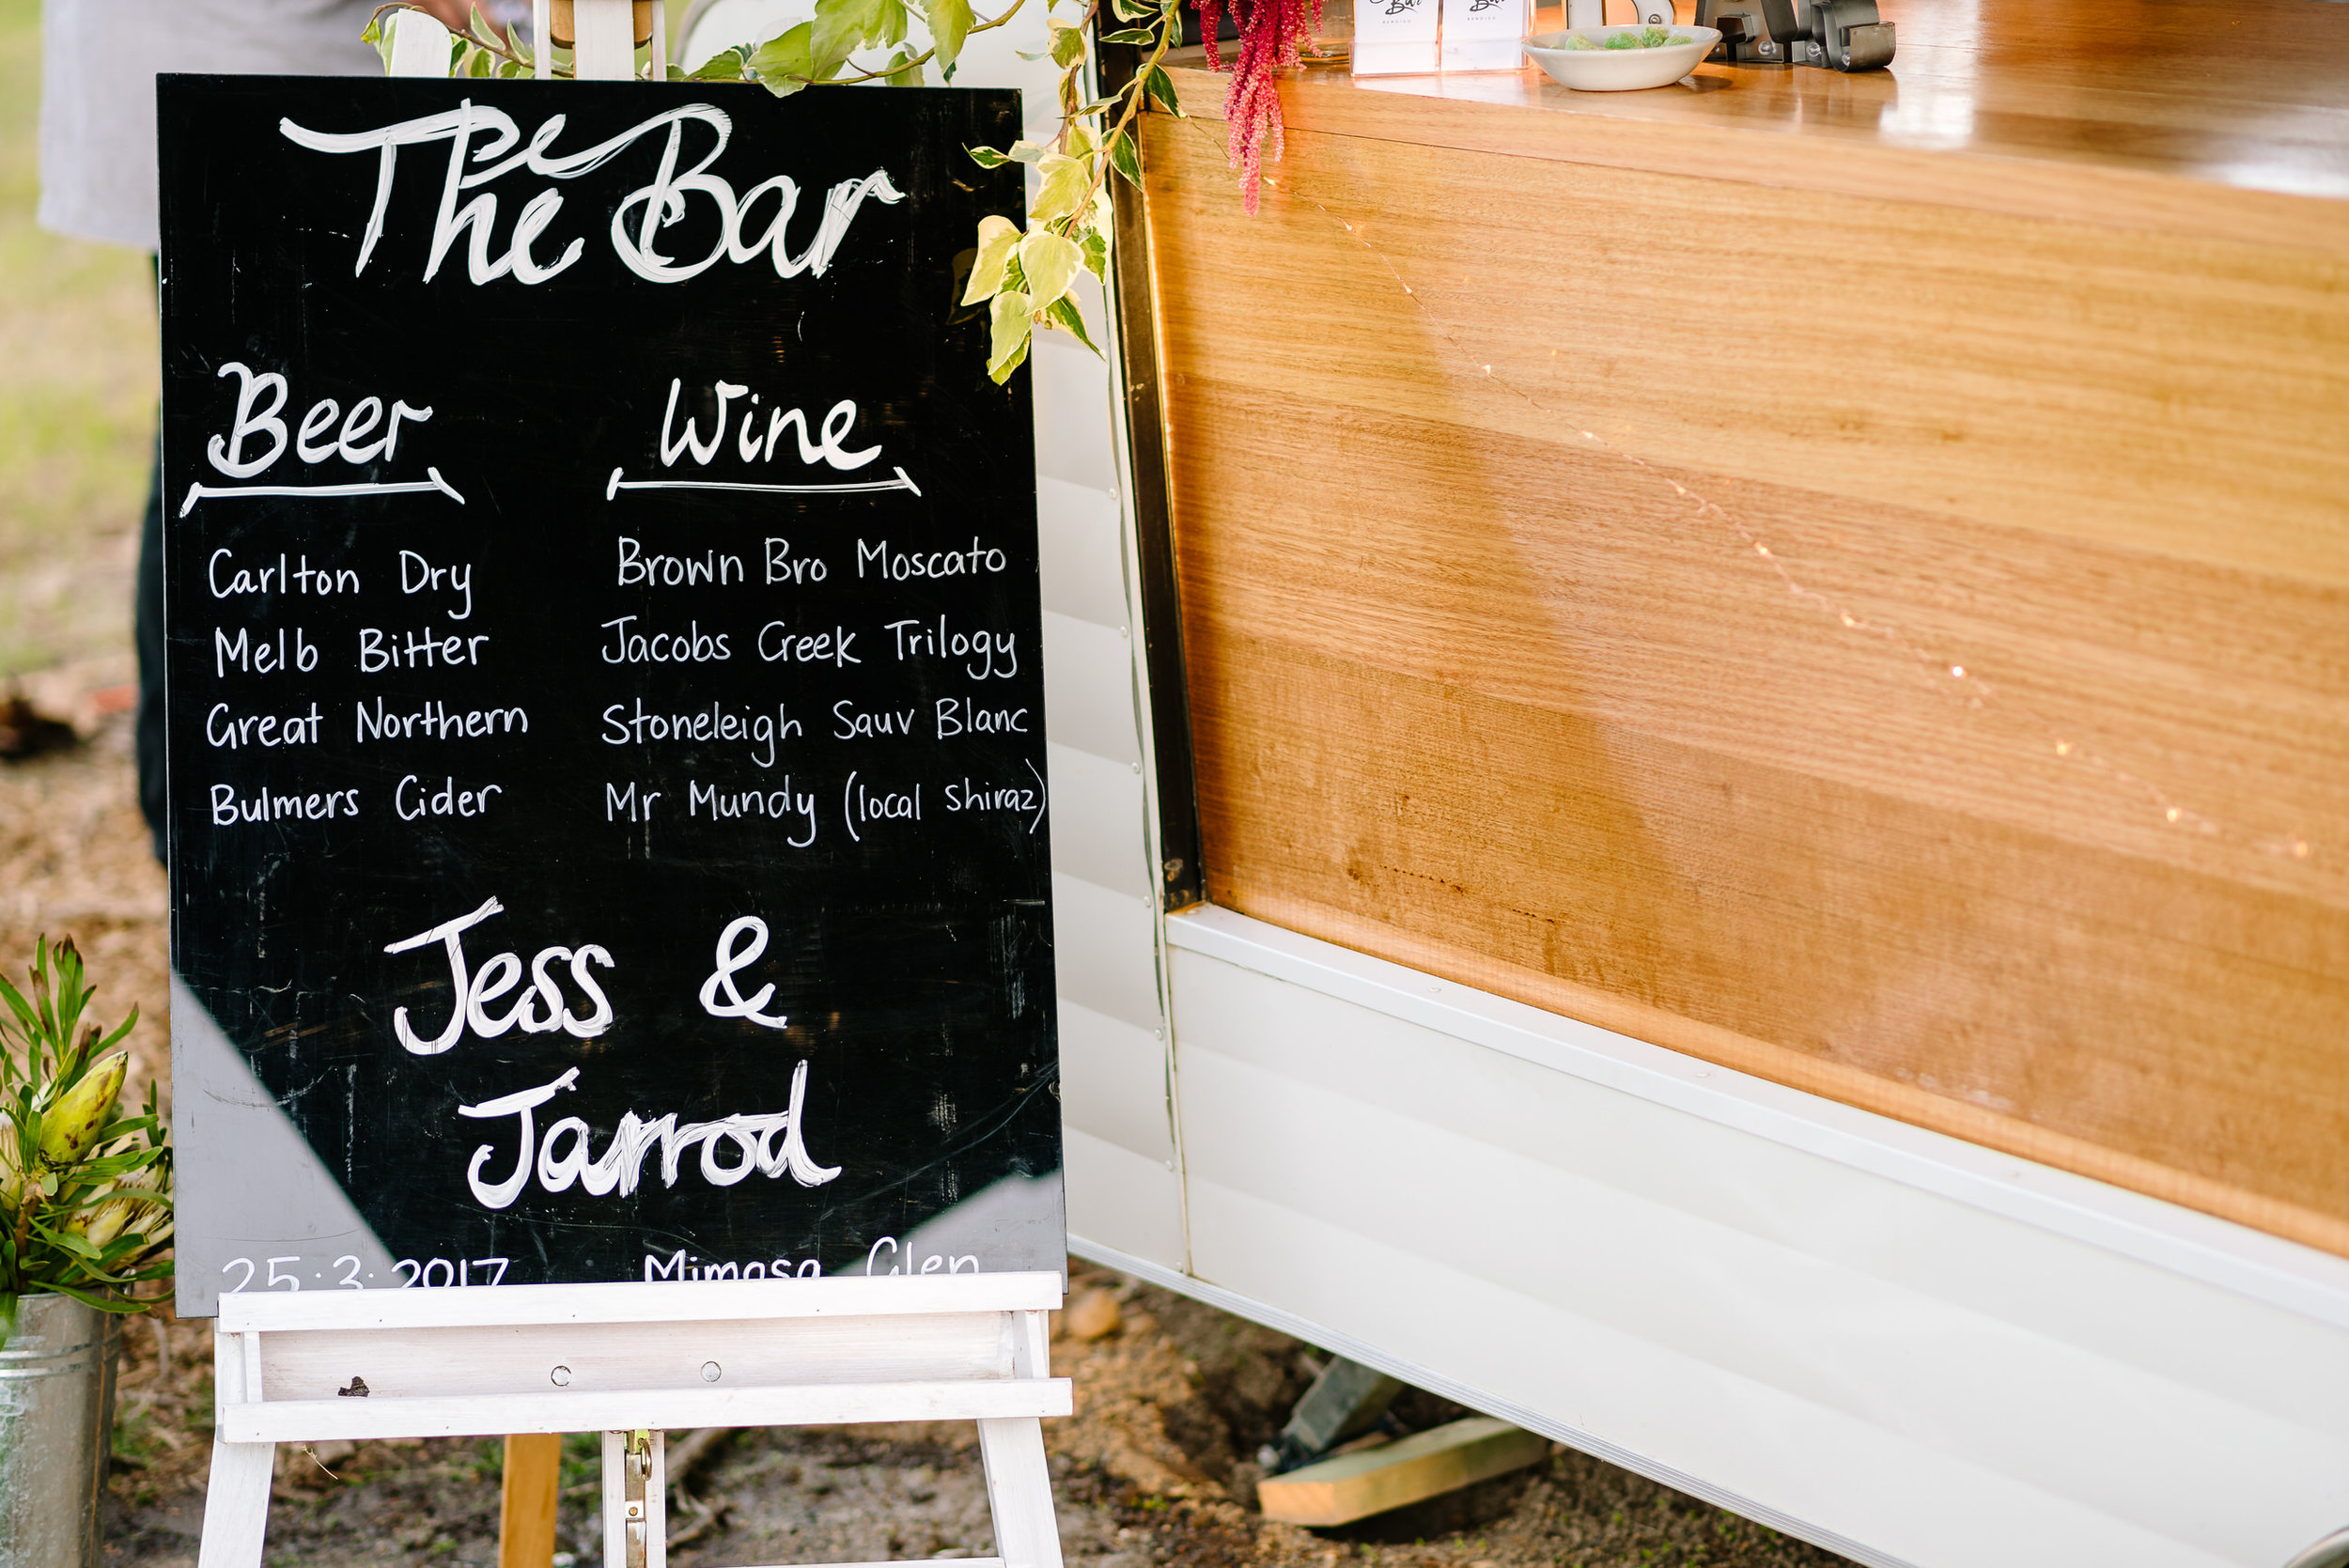 The Bar
Beer
Wine
Carlton Dry
Melb Bitter
Great Northern
Bulmers Cider
Brown Bro Moscato
Jacobs Creek Trilogy
Stoneleigh Sauv Blanc
Mr Mundy (local shiraz)
Jess &
Jarrod
25.3.2017
Mimosa Glen
Bar
BENDIGO
Bar
BENDIGO